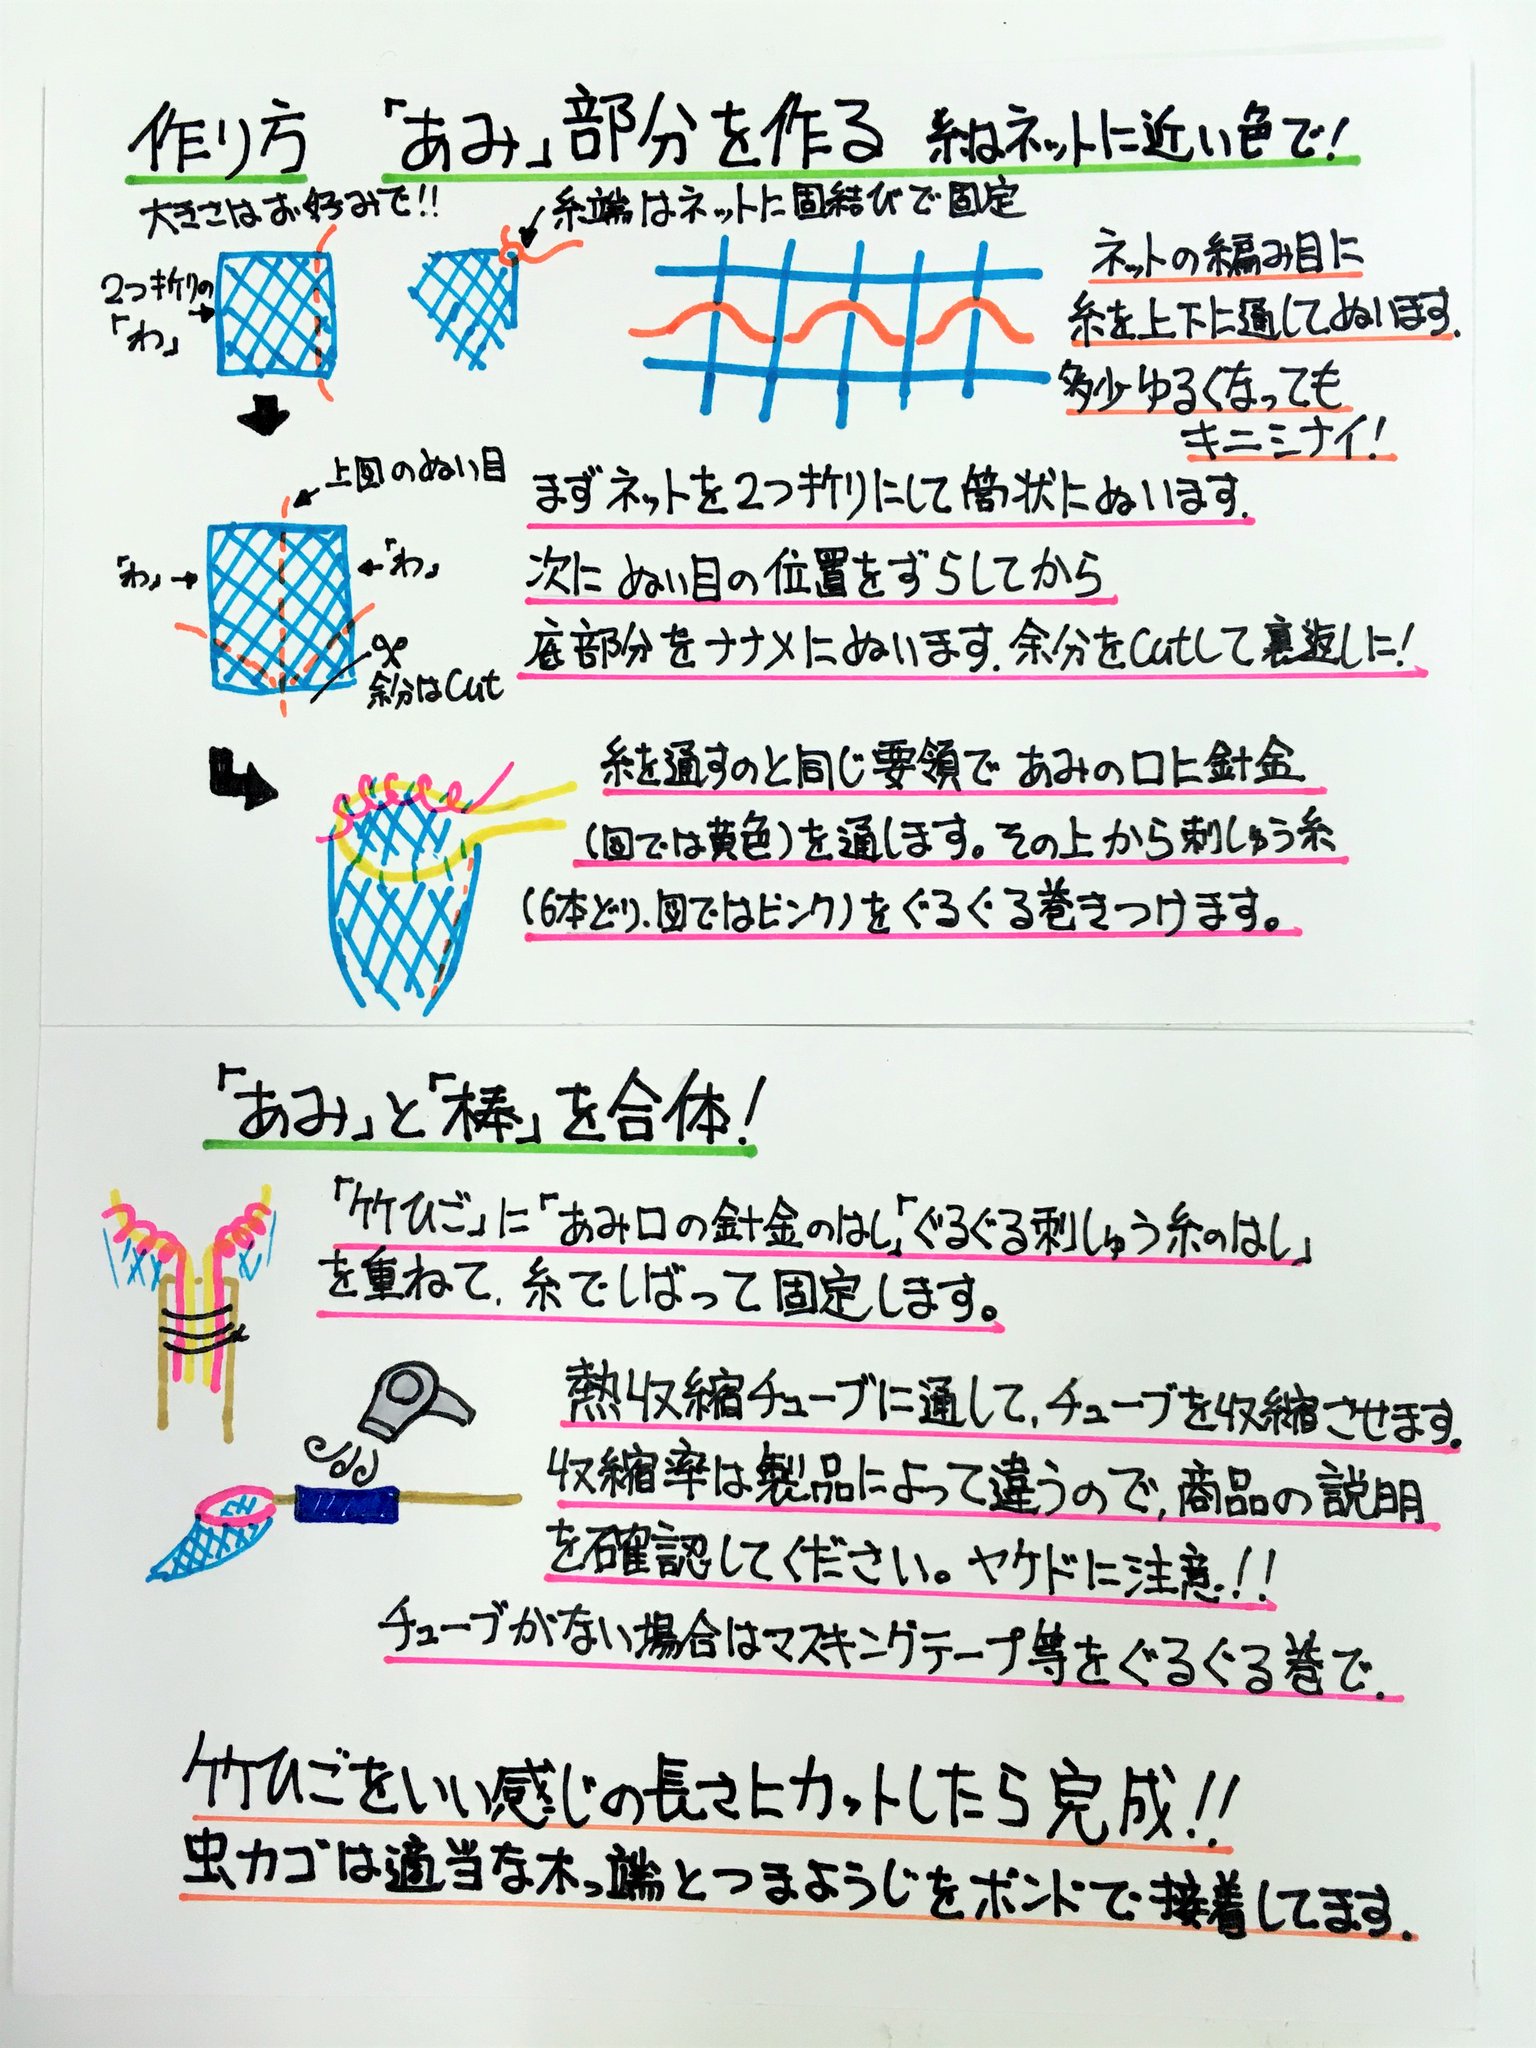 作り方 「あみ」部分を作る 糸はネットに近い色で!
大きさはお好みで!!
糸端はネットに固結びで固定
2つ折りの
「わ」
ネットの編み目に
糸を上下に通してぬいます.
多少ゆるくなっても
キニミナイ!
上図のぬい目
「わ」
「わ」
余分はCut
まずネットを2つ折りにして筒状にぬいます.
次にぬい目の位置をずらしてから
底部分をナナメにぬいます.余分をCutして裏返しに!
糸を通すのと同じ要領であみの口に針金
(図では黄色)を通します。その上から刺しゅう糸
(6本どり、図ではピンク)をぐるぐる巻きつけます。
「あみ」と「棒」を合体!
「竹ひご」に「あみ口の針金のはし」「ぐるぐる刺しゅう糸のはし」
を重ねて、糸でしばって固定します。
熱収縮チューブに通して、チューブを収縮させます.
収縮率は製品によって違うので,商品の説明
を確認してください。ヤケドに注意!!
チューブがない場合はマスキングテープ等をぐるぐる巻で.
竹ひごをいい感じの長さにカットしたら完成!!
虫カゴは適当な木っ端とつまようじをボンドで接着してます.